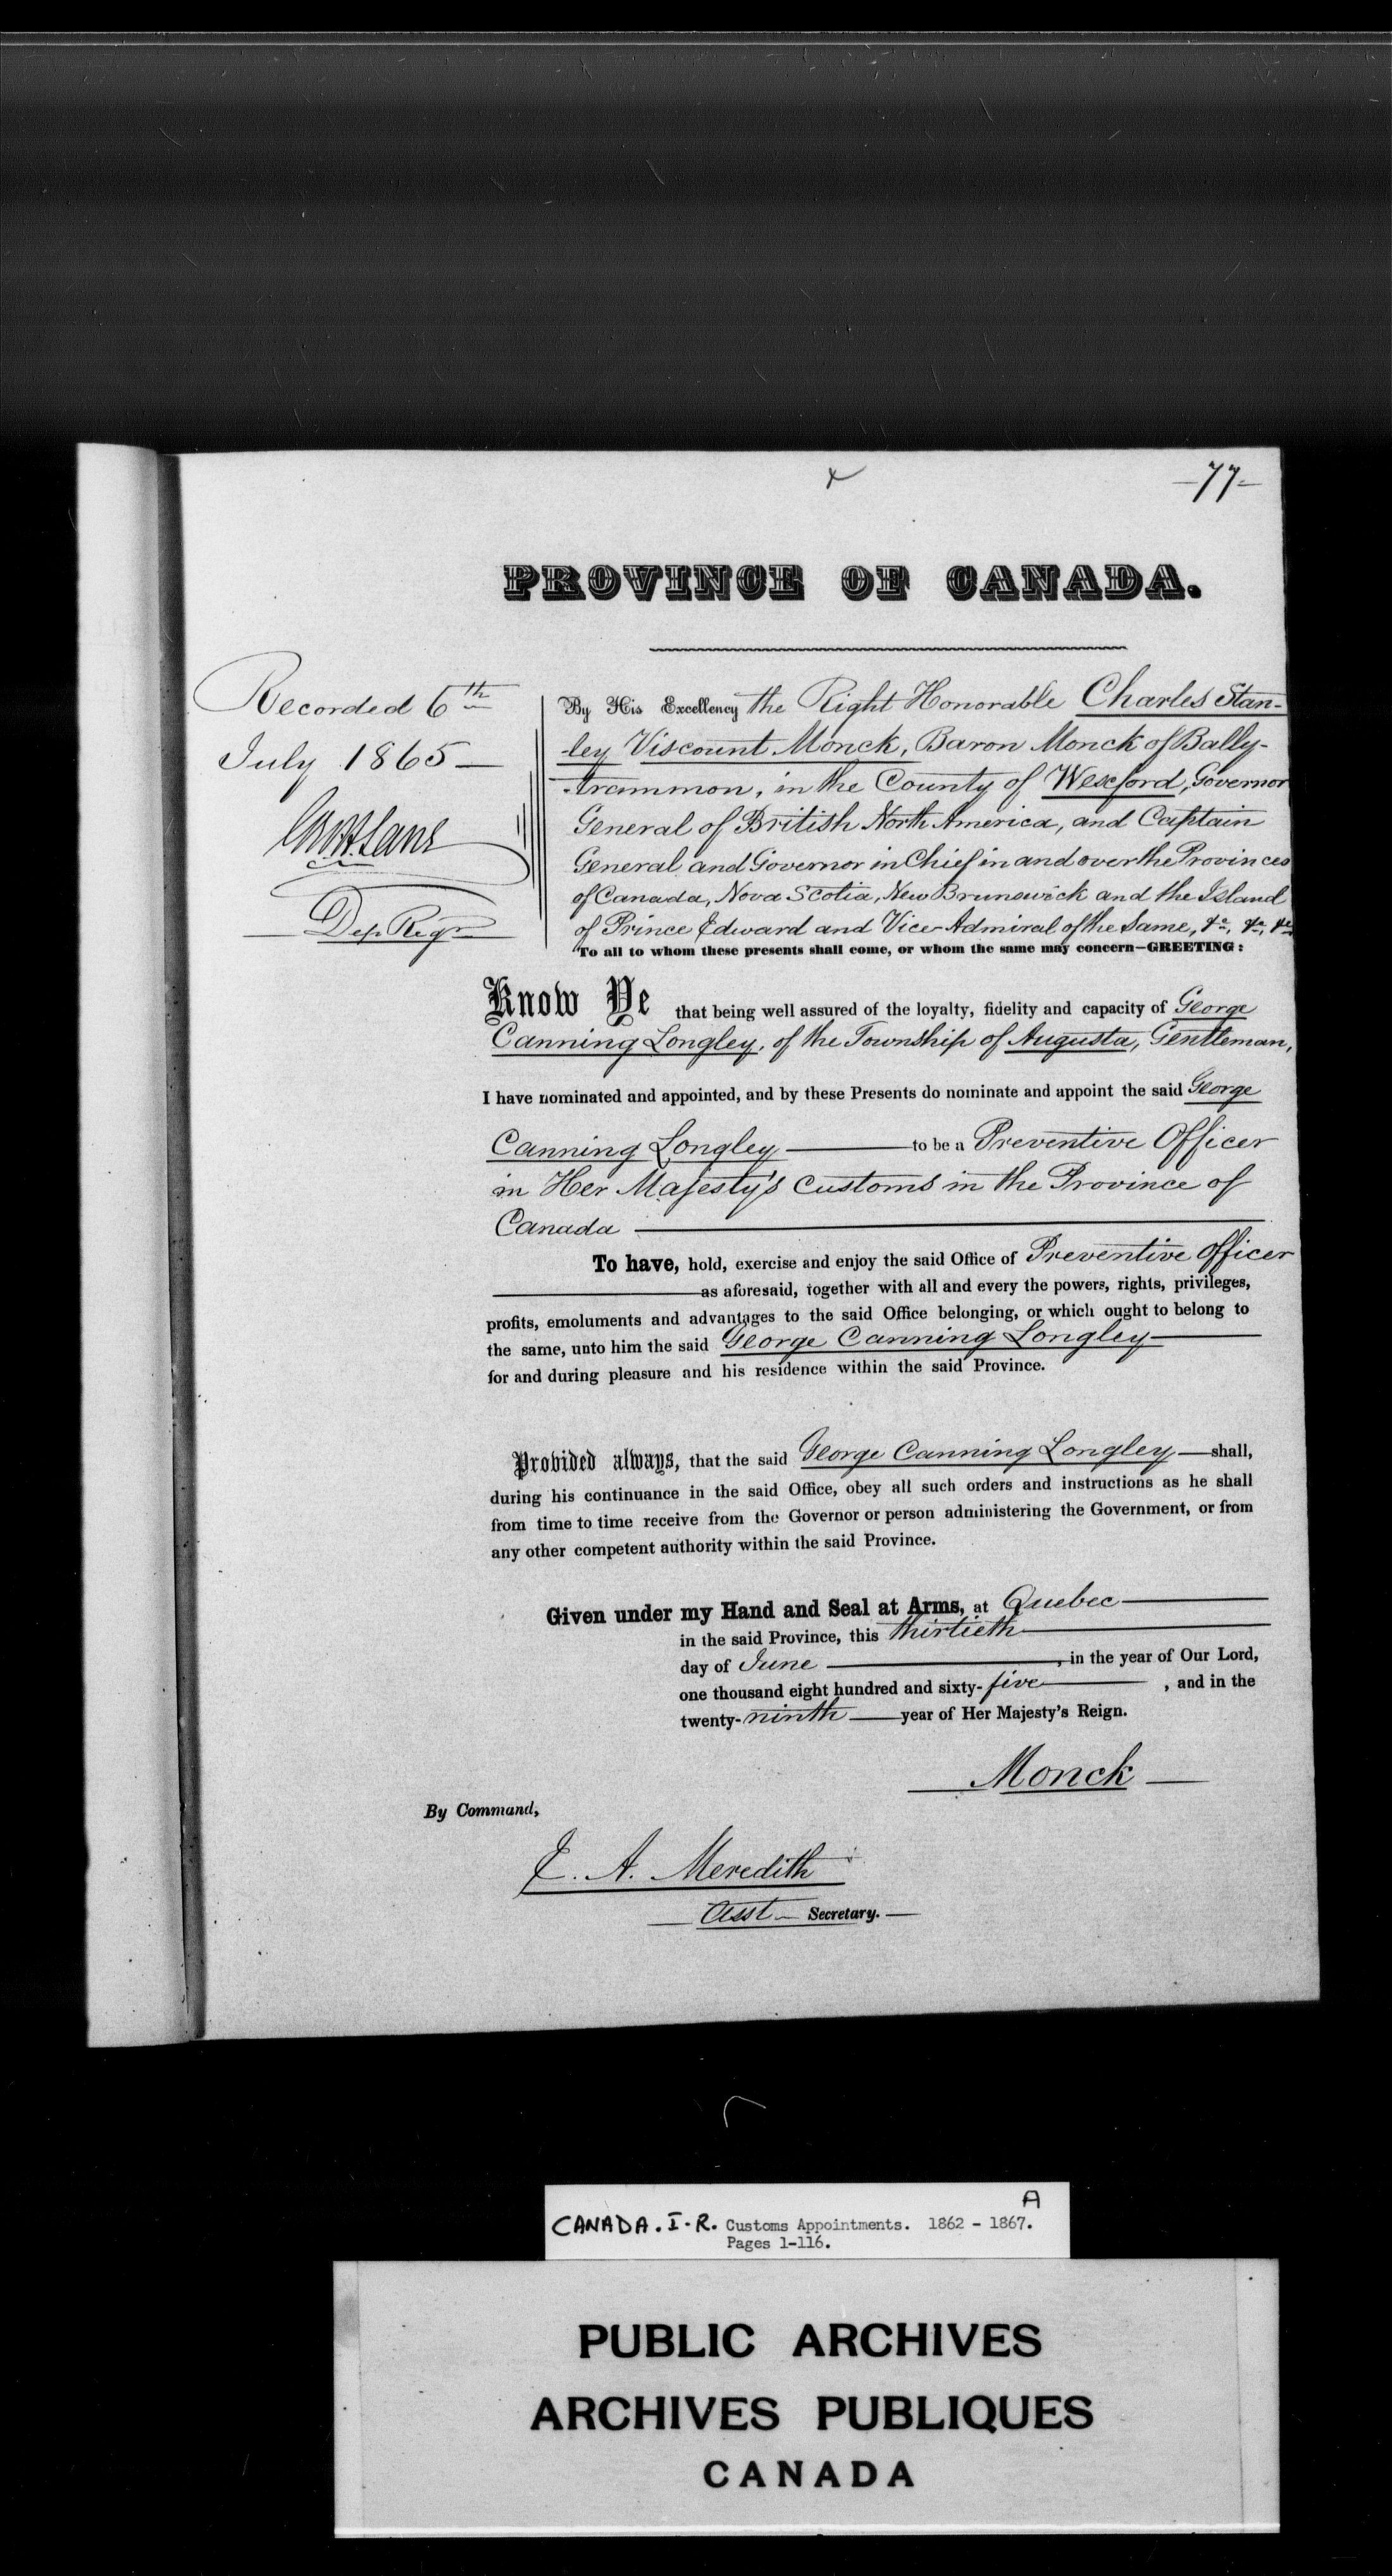 -77-
PROVINCE OF CANADA.
Recorded 6th
July 1865
Dep. Regr
By His Excellency the Right Honorable Charles Stan-
-ley Viscount Monck, Baron Monck of Bally-
-trammon, in the County of Wexford, Governor
General of British North America, and Captain
General and Governor in Chief in and over the Provinces
of Canada, Nova Scotia, New Brunswick and the Island
of Prince Edward and Vice-Admiral of the Same, &c, &c, &c
To all to whom these presents shall come, or whom the same may concern—GREETING:
Know Ye that being well assured of the loyalty, fidelity and capacity of George
Canning Longley, of the Township of Augusta, Gentleman,
I have nominated and appointed, and by these Presents do nominate and appoint the said George
Canning Longley to be a Preventive Officer
in Her Majesty's Customs in the Province of
Canada
To have, hold, exercise and enjoy the said Office of Preventive Officer
as aforesaid, together with all and every the powers, rights, privileges,
profits, emoluments and advantages to the said Office belonging, or which ought to belong to
the same, unto him the said George Canning Longley
for and during pleasure and his residence within the said Province.
Provided always, that the said George Canning Longley shall,
during his continuance in the said Office, obey all such orders and instructions as he shall
from time to time receive from the Governor or person administering the Government, or from
any other competent authority within the said Province.
Given under my Hand and Seal at Arms, at Quebec
in the said Province, this thirtieth
day of June, in the year of Our Lord,
one thousand eight hundred and sixty-five, and in the
twenty-ninth year of Her Majesty's Reign.
Monck
By Command,
E. A. Meredith
Asst Secretary.
A
CANADA. I-R. Customs Appointments. 1862 - 1867.
Pages 1-116.
PUBLIC ARCHIVES
ARCHIVES PUBLIQUES
CANADA